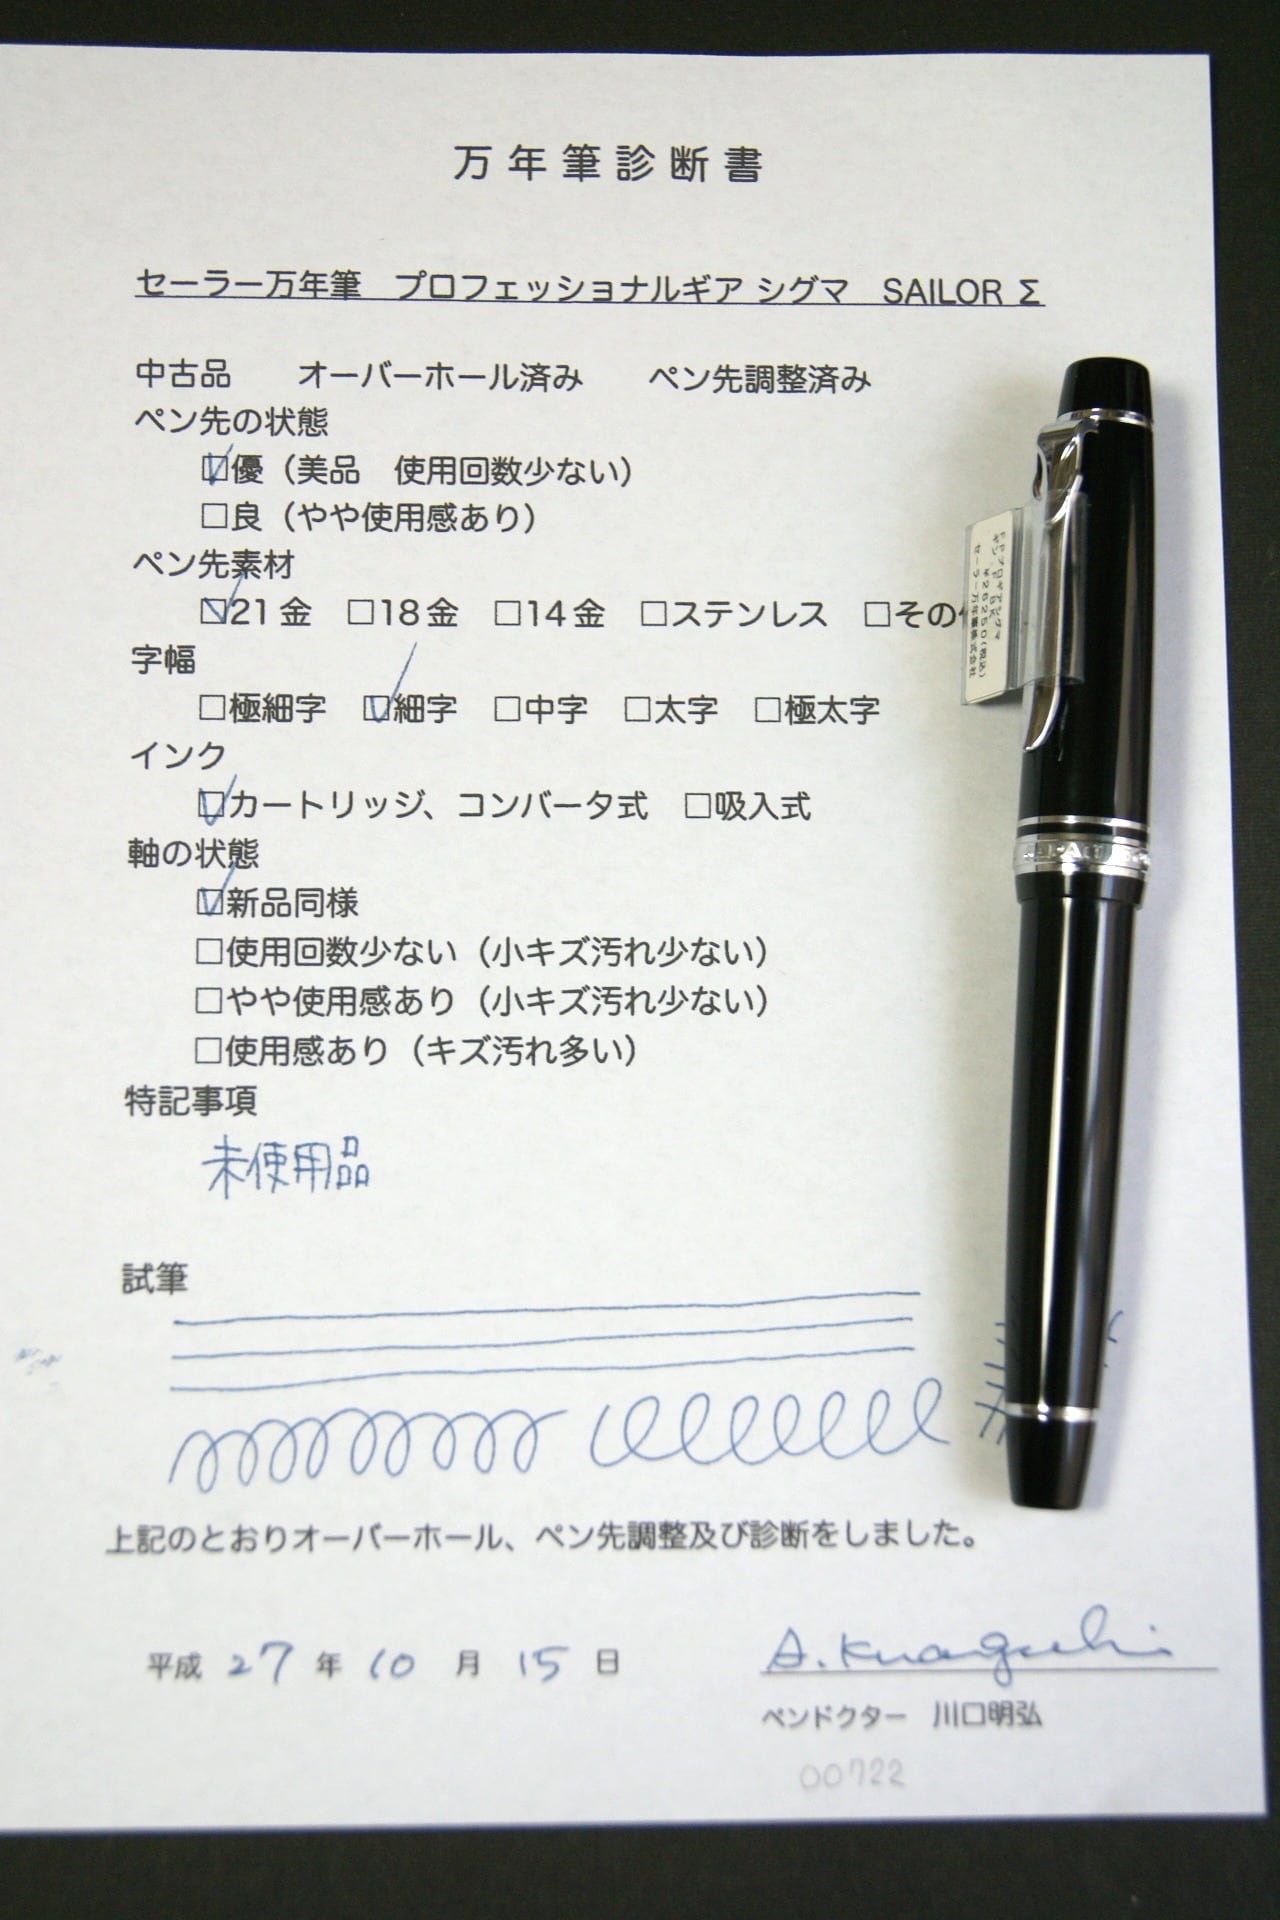 万年筆診断書
セーラー万年筆　プロフェッショナルギア シグマ　SAILOR Σ
中古品　オーバーホール済み　ペン先調整済み
ペン先の状態
☑優（美品　使用回数少ない）
□良（やや使用感あり）
ペン先素材
☑21金　□18金　□14金　□ステンレス　□その
字幅
□極細字　☑細字　□中字　□太字　□極太字
インク
☑カートリッジ、コンバータ式　□吸入式
軸の状態
☑新品同様
□使用回数少ない（小キズ汚れ少ない）
□やや使用感あり（小キズ汚れ少ない）
□使用感あり（キズ汚れ多い）
特記事項
未使用品
試筆
上記のとおりオーバーホール、ペン先調整及び診断をしました。
平成 27 年 10 月 15 日
ペンドクター　川口明弘
00722
¥26250(税込)
セーラー万年筆株式会社